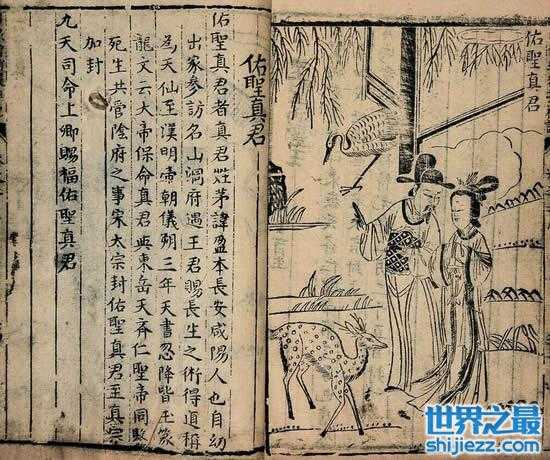 佑聖真君
佑聖真君
佑聖真君者真君姓茅諱盈本長安咸陽人也自幼
出家參訪名山洞府遇王君賜長生之術得道稱
為天仙至漢明帝朝儀朔三年天書忽降皆玉篆
龍文云大帝保命真君與東岳天齊仁聖帝同
死生共管陰府之事宋太宗封佑聖真君至真宗
加封
九天司命上卿賜福佑聖真君
世界之最
shijiezz.com